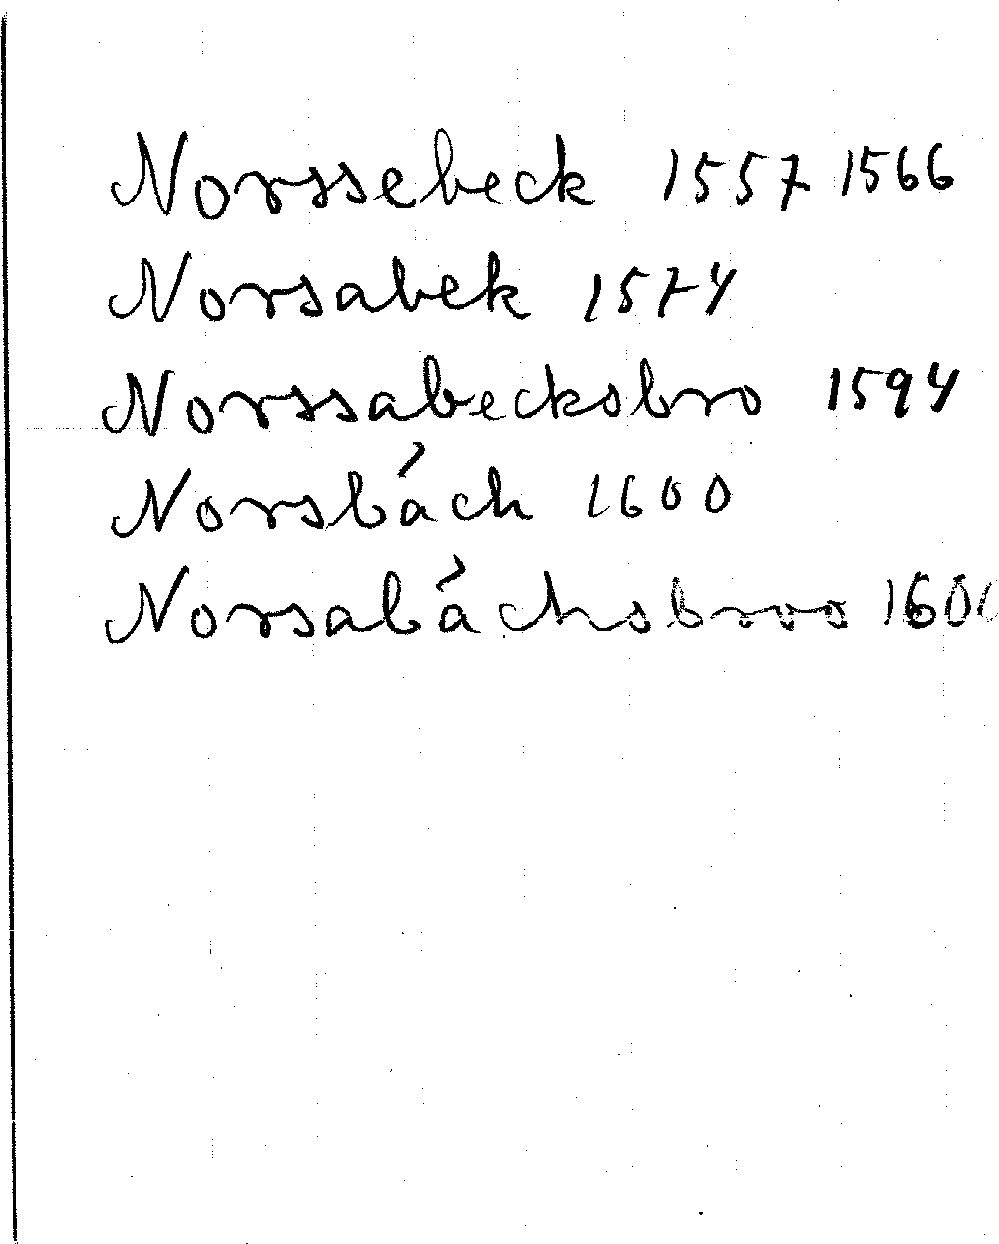 Norssebeck 1557 1566
Norsabek 1574
Norssabecksbro 1594
Norsbách 1600
Norsabáchsbroo 1600